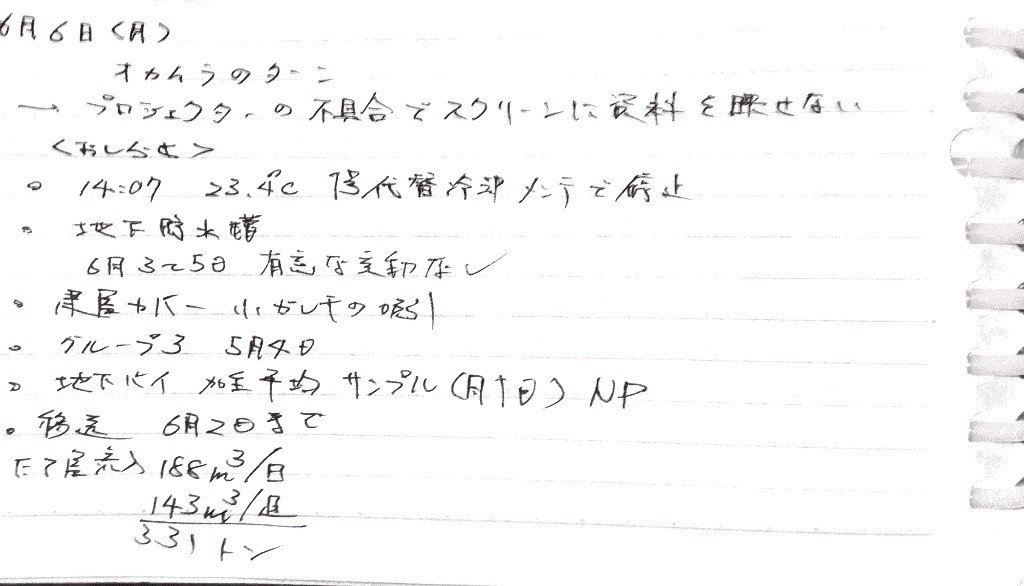 6月6日(月)
オカムラのターン
→ プロジェクターの不具合でスクリーンに資料を映せない
<おしらせ>
○ 14:07 23.4℃ 代替冷却メンテで停止
○ 地下貯水槽
6月3〜5日 有意な変動なし
○ 建屋カバー 小ガレキの吸引
○ グループ3 5月4日
○ 地下バイ 加重平均 サンプル(月1日) NP
○ 移送 6月2日まで
たて屋流入 188m³/日
143m³/日
331トン